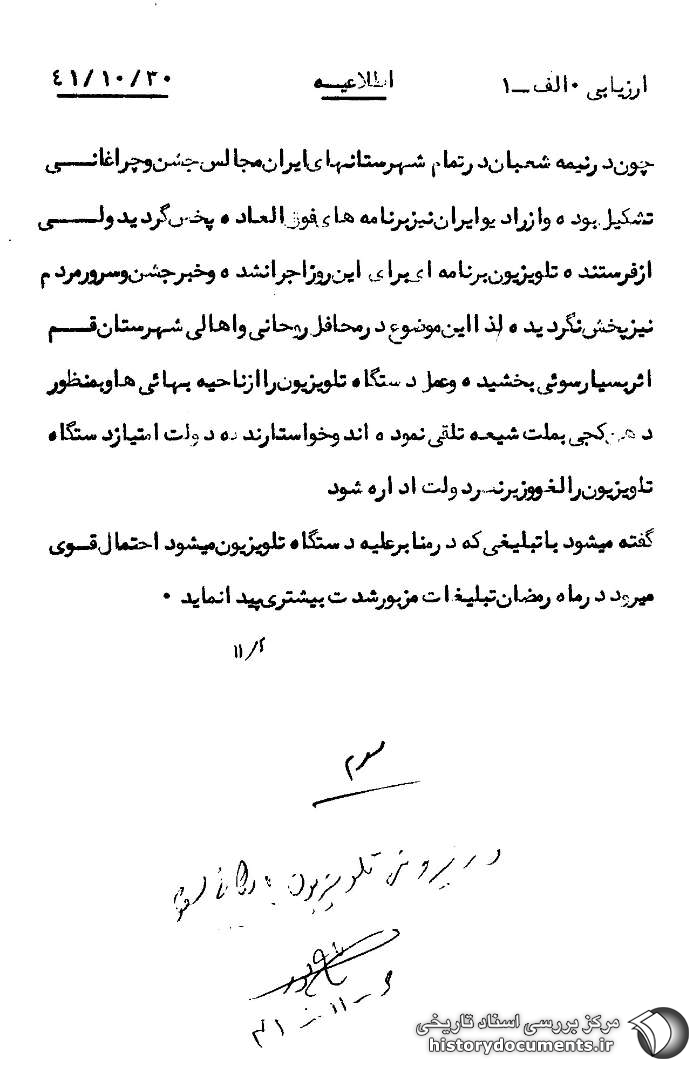 ارزیابی ۰ الف ــ ۱
اطلاعیــه
۴۱/۱۰/۳۰
چون در نیمه شعبان در تمام شهرستانهای ایران مجالس جشن و چراغانــی
تشکیل بوده و از رادیو ایران نیز برنامه های فوق العاده پخش گردید ولــی
از فرستنده تلویزیون برنامه ای برای این روز اجرا نشده و خبر جشن و سرور مردم
نیز پخش نگردیده لذا این موضوع در محافل روحانی و اهالی شهرستان قــم
اثر بسیار سوئی بخشیده و عمل دستگاه تلویزیون را از ناحیه بهائی ها و بمنظور
دهن کجی بملت شیعه تلقی نموده اند و خواستارند که دولت امتیاز دستگاه
تلویزیون را لغو و زیر نظر دولت اداره شود
گفته میشود با تبلیغی که در منابر علیه دستگاه تلویزیون میشود احتمال قــوی
میرود در ماه رمضان تبلیغات مزبور شدت بیشتری پیدا نماید ۰
۱۱/۲
در پرونده تلویزیون
۶ ــ ۱۱ ــ ۴۱
مرکز بررسی اسناد تاریخی
historydocuments.ir